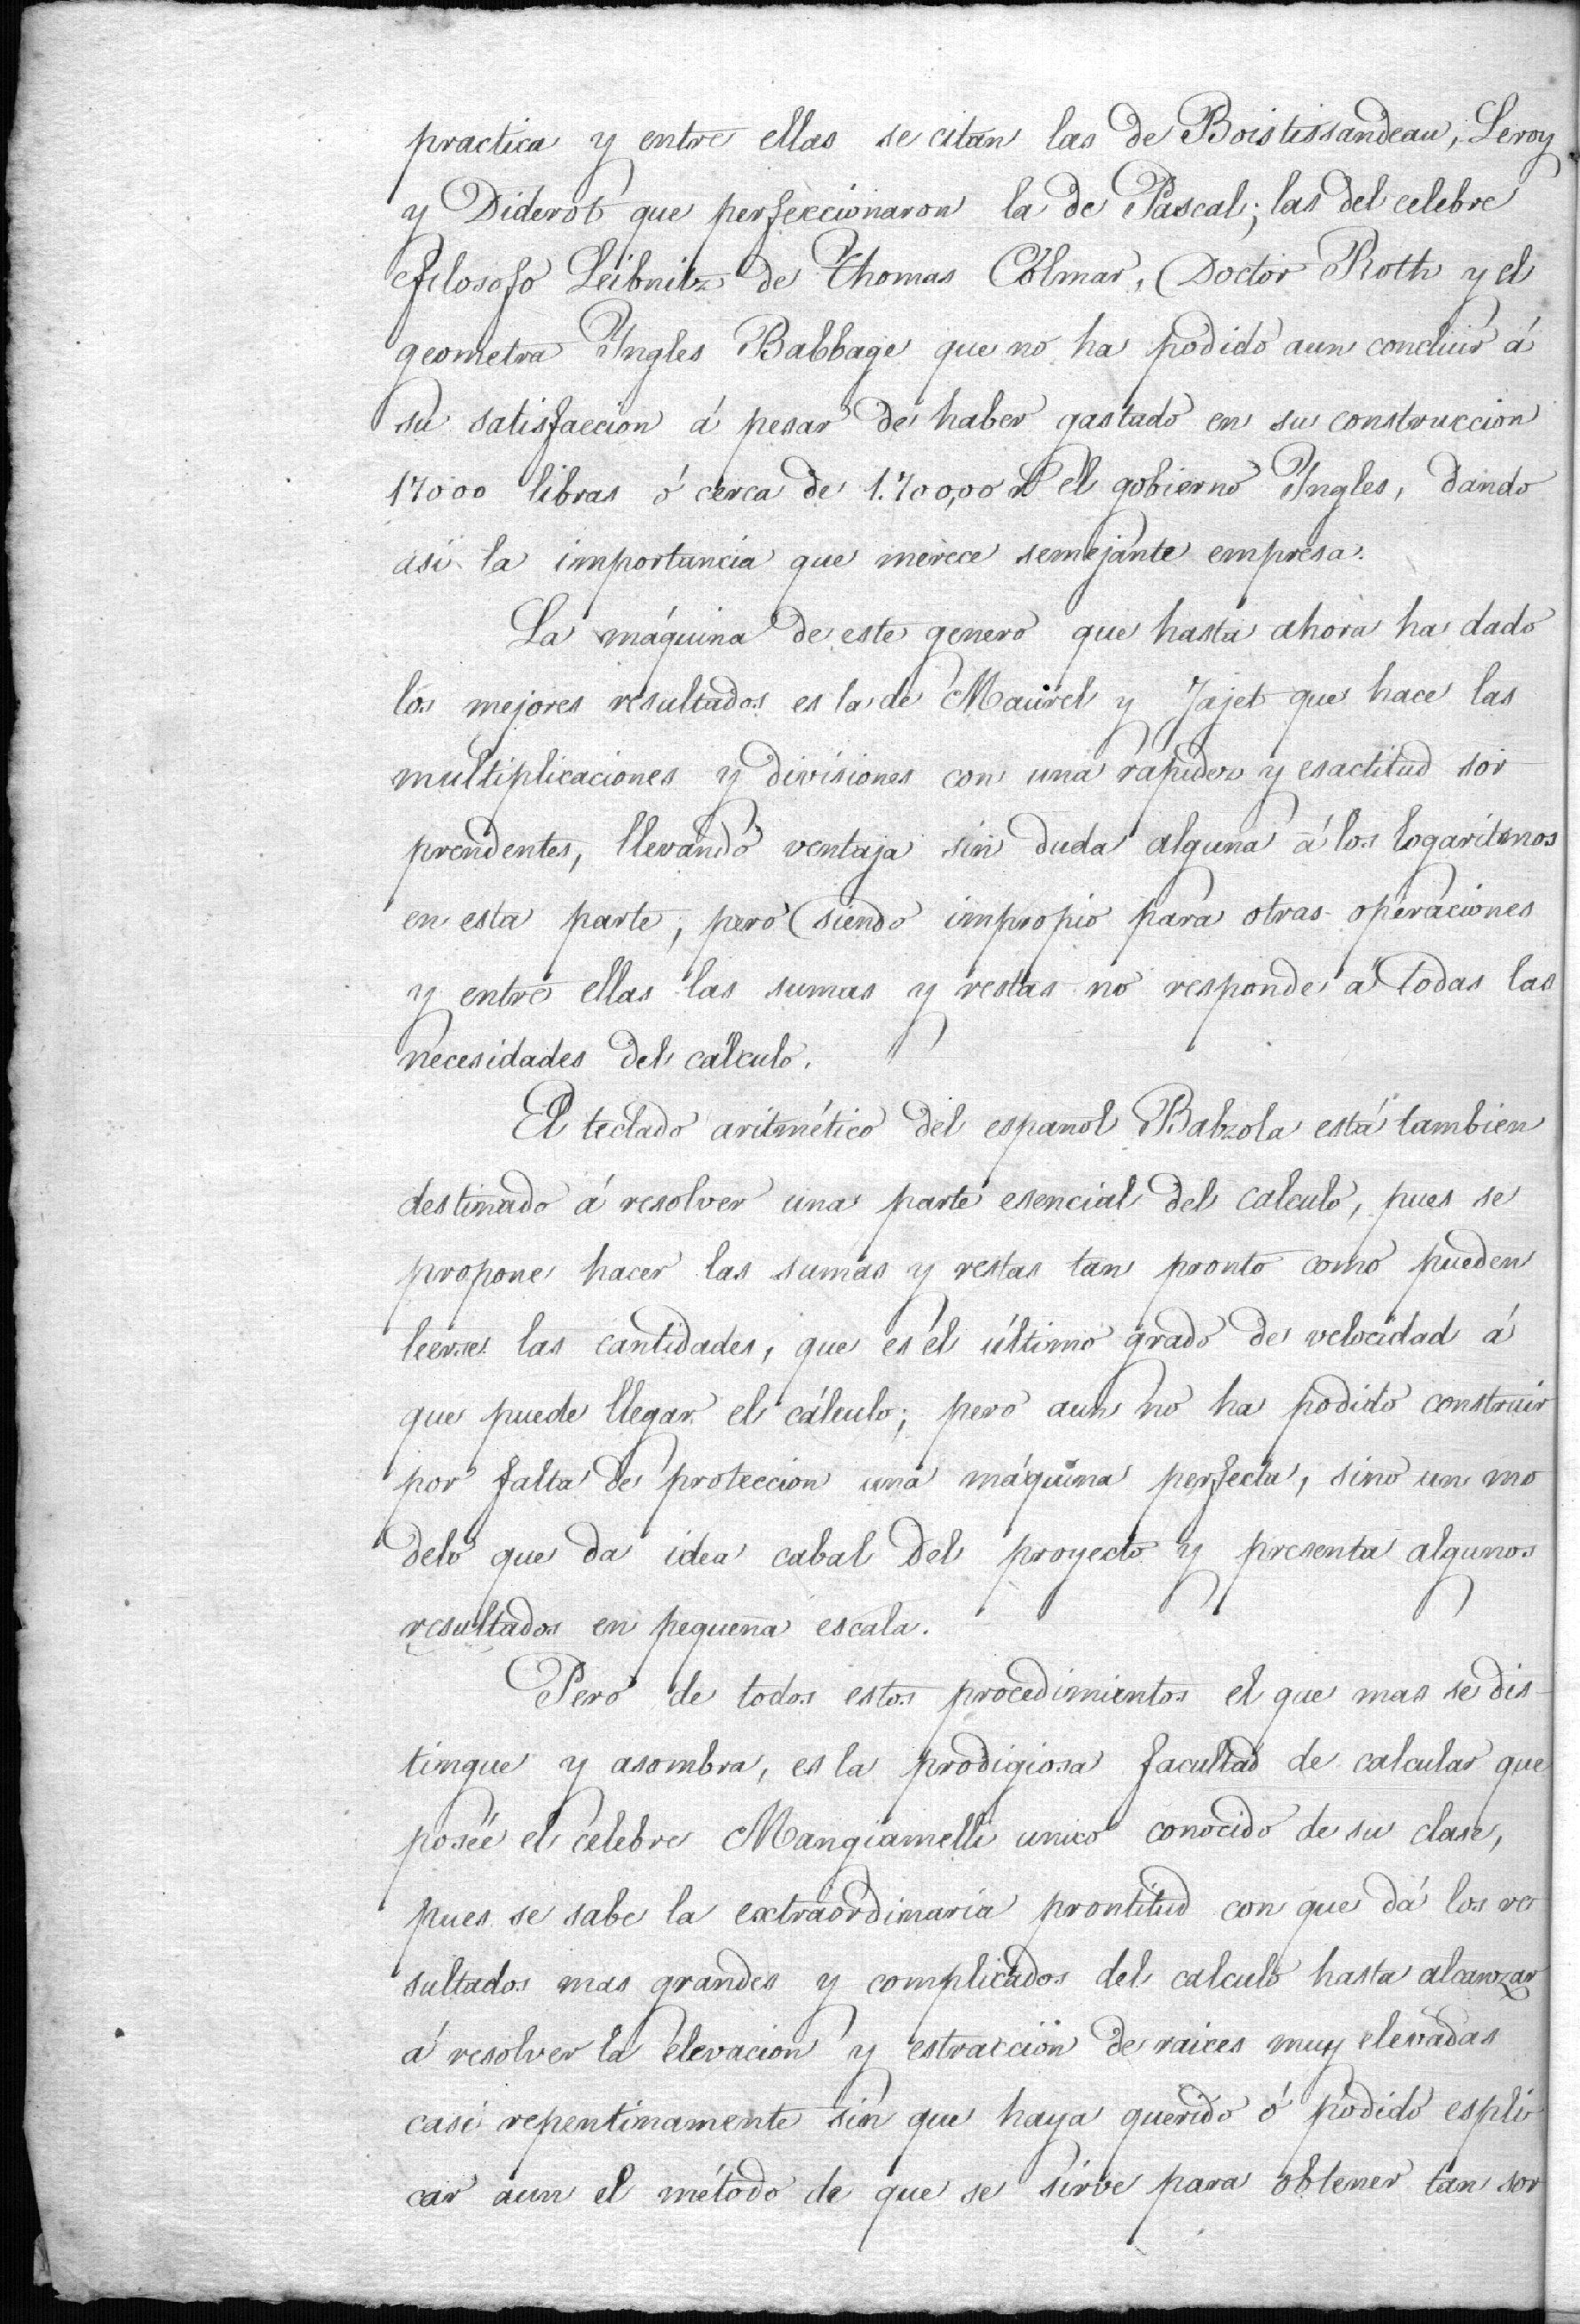 practica y entre ellas se citan las de Boistissandeau, Leroy
y Diderot que perfeccionaron la de Pascal; las del celebre
filosofo Leibnitz de Thomas Colmar, Doctor Roth y el
geometra Ingles Babbage que no ha podido aun concluir á
su satisfaccion á pesar de haber gastado en su construccion
17000 libras ó cerca de 1.700,00 el gobierno Ingles, dando
asi la importancia que merece semejante empresa.
La máquina de este genero que hasta ahora ha dado
los mejores resultados es la de Maurel y Jajet que hace las
multiplicaciones y divisiones con una rapidez y esactitud sor
prendentes, llevando ventaja sin duda alguna á los logaritmos
en esta parte, pero siendo impropio para otras operaciones
y entre ellas las sumas y restas no responde á todas las
necesidades del calculo.
El teclado aritmético del español Babzola está tambien
destinado á resolver una parte esencial del calculo, pues se
propone hacer las sumas y restas tan pronto como pueden
leerse las cantidades, que es el último grado de velocidad á
que puede llegar el cálculo; pero aun no ha podido construir
por falta de proteccion una máquina perfecta, sino un mo
delo que da idea cabal del proyecto y presenta algunos
resultados en pequeña escala.
Pero de todos estos procedimientos el que mas se dis-
tingue y asombra, es la prodigiosa facultad de calcular que
poseé el celebre Mangiamelli unico conocido de su clase,
pues se sabe la extraordinaria prontitud con que dá los re
sultados mas grandes y complicados del calculo hasta alcanzar
á resolver la elevacion y estraccion de raices muy elevadas
casi repentinamente sin que haya querido ó podido espli
car aun el método de que se sirve para obtener tan sor